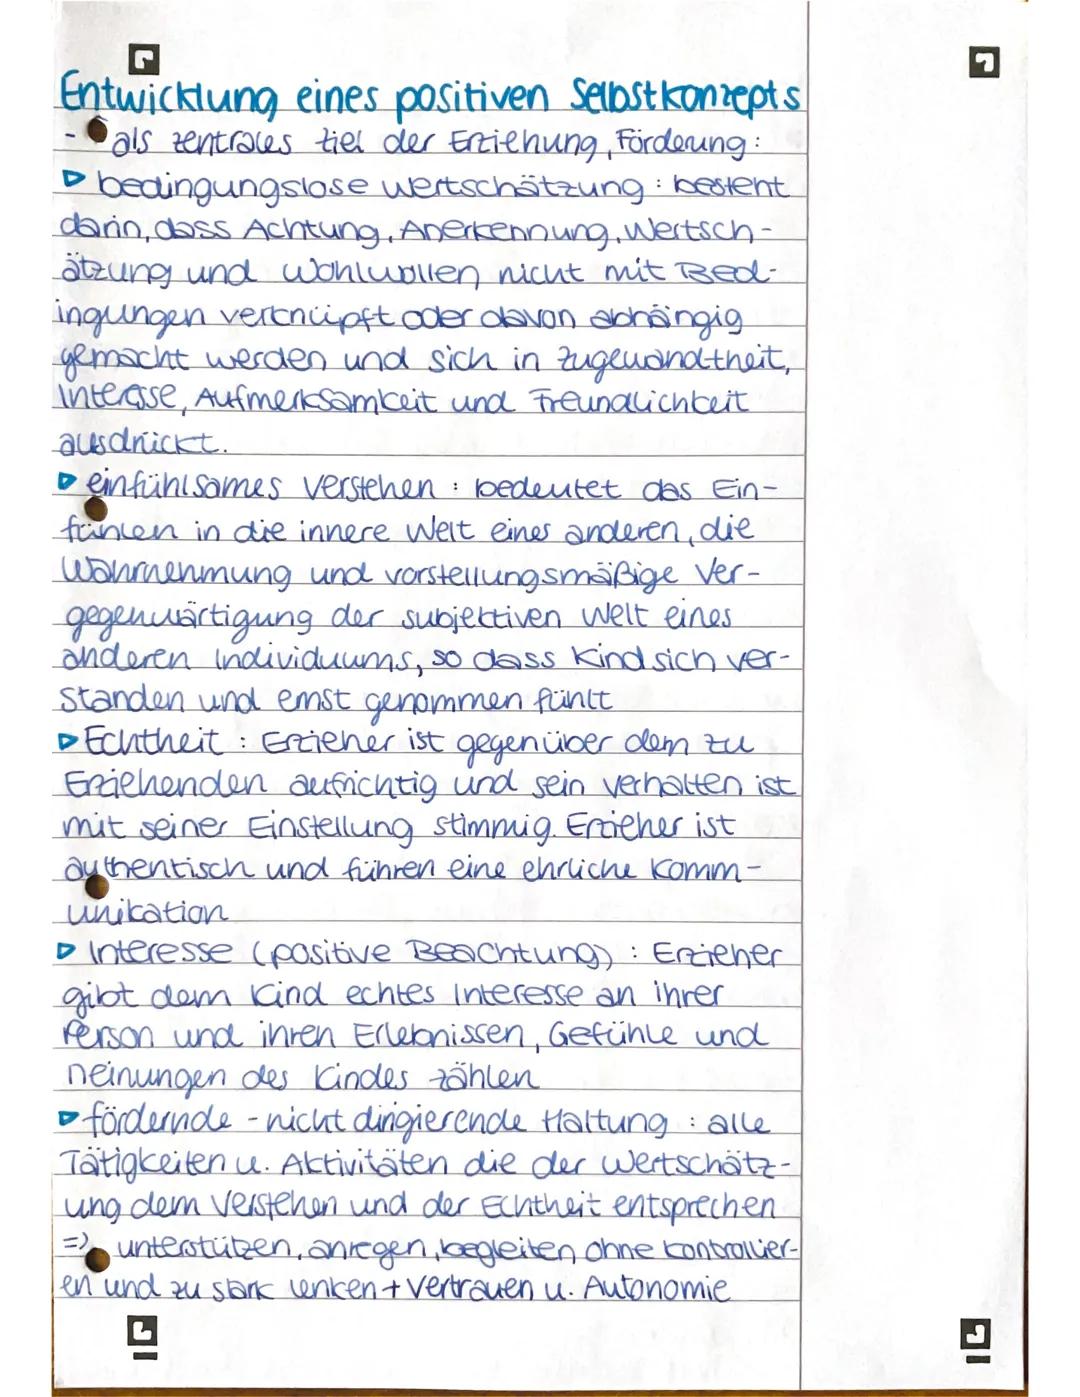 Entwicklung eines positiven Selbstkonzepts
- als zentrales Ziel der Erziehung, Förderung:
▷ bedingungslose Wertschätzung: besteht
darin, dass Achtung, Anerkennung, Wertsch-
ätzung und Wohlwollen nicht mit Bed-
ingungen verknüpft oder davon abhängig
gemacht werden und sich in Zugewandtheit,
Interesse, Aufmerksamkeit und Freundlichkeit
ausdrückt.
▷ einfühlsames Verstehen: bedeutet das Ein-
fühlen in die innere Welt eines anderen, die
Wahrnehmung und vorstellungsmäßige Ver-
gegenwärtigung der subjektiven Welt eines
anderen Individuums, so dass Kind sich ver-
standen und ernst genommen fühlt
▷ Echtheit: Erzieher ist gegenüber dem zu
Erziehenden aufrichtig und sein Verhalten ist
mit seiner Einstellung stimmig. Erzieher ist
authentisch und führen eine ehrliche Komm-
unikation
▷ Interesse (positive Beachtung): Erzieher
gibt dem Kind echtes Interesse an ihrer
Person und ihren Erlebnissen, Gefühle und
Meinungen des Kindes zählen
▷ fördernde - nicht dirigierende Haltung: alle
Tätigkeiten u. Aktivitäten die der Wertschätz-
ung dem Verstehen und der Echtheit entsprechen
=> unterstützen, anregen, begleiten, ohne kontrollier-
en und zu stark lenken + Vertrauen u. Autonomie